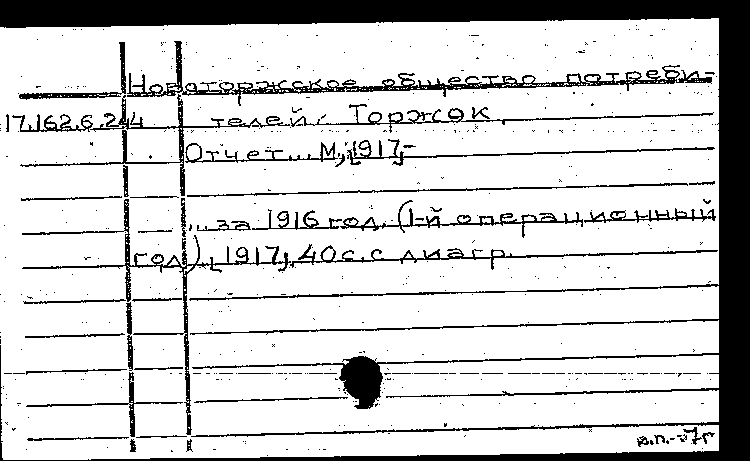 Новоторжское общество потреби-
17.162.6.244 телей. Торжок.
Отчет... М., [1917]-
... за 1916 год. (1-й операционный
год). [1917]. 40 с. с диагр.